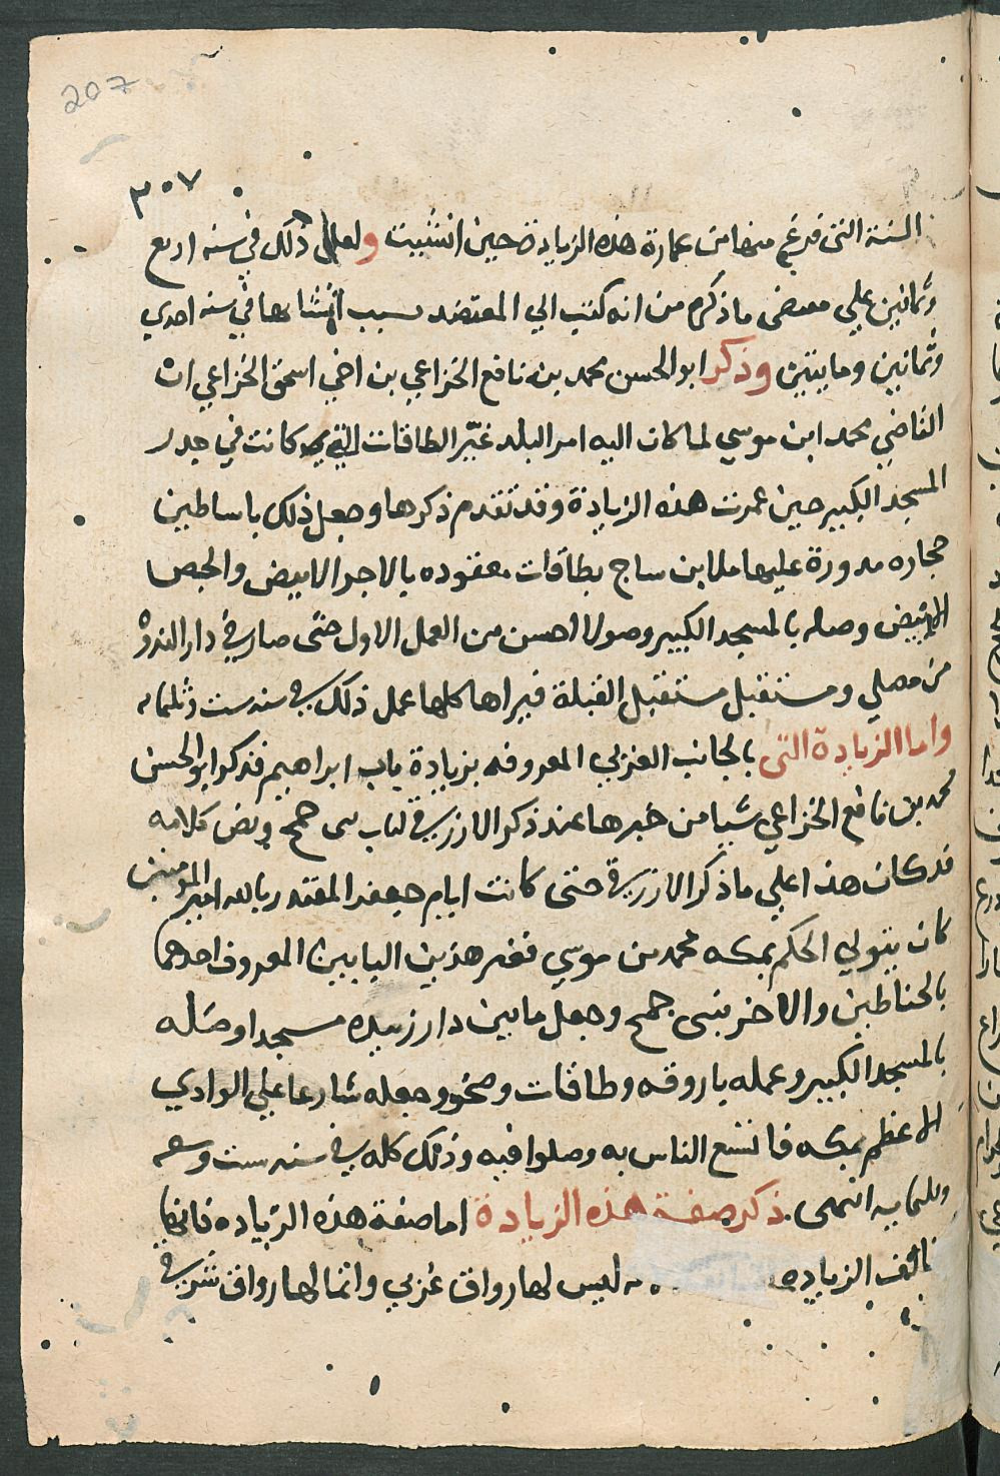 207
٣٠٧
السنة التى فرغ منها من عمارة هذه الزيادة حين انشيت ولعل ذلك في سنه اربع
وثمانين علي مقتضى ما ذكره من انه كتب الي المعتضد بسبب انشاءها في سنه احدي
وثمانين ومايتين وذكر ابو الحسن محمد بن نافع الخزاعي بن اخي اسحق الخزاعي ان
القاضي محمد ابن موسي لما كان اليه امر البلد غيّر الطاقات التي كانت في جدر
المسجد الكبير حين عمرت هذه الزيادة وقد تقدم ذكرها وجعل ذلك باساطين
حجاره مدورة عليها ملابن ساج بطاقات معقوده بالاجر الابيض والجص
الابيض وصله بالمسجد الكبير وصولا احسن من العمل الاول حتى صار في دار الندوة
من مصلي ومستقبل مستقبل القبلة فيراها كلها عمل ذلك في سنه ست وثلثمايه
واما الزيادة التى بالجانب الغربي المعروفه بزيادة باب ابراهيم فذكر ابو الحسن
محمد بن نافع الخزاعي شيا من خبرها عند ذكر الازرقي لباب بنى جمح ونص كلامه
قد كان هذا علي ما ذكر الازرقي حتى كانت ايام جعفر المقتدر بالله امير المومنين
كان يتولي الحكم بمكه محمد بن موسي فغير هذين البابين المعروف احدهما
بالحناطين والاخر ببنى جمح وجعل ما بين دار زبيده مسجدا وصله
بالمسجد الكبير وعمله باروقه وطاقات وصحن وجعله شارعا علي الوادي
الاعظم بمكه فاتسع الناس به وصلوا فيه وذلك كله في سنه ست وسبعه
وثلثمايه انتهى ذكر صفة هذه الزيادة اما صفة هذه الزياده فانها
الزياده ليس لها رواق غربي وانما لها رواق شرقي